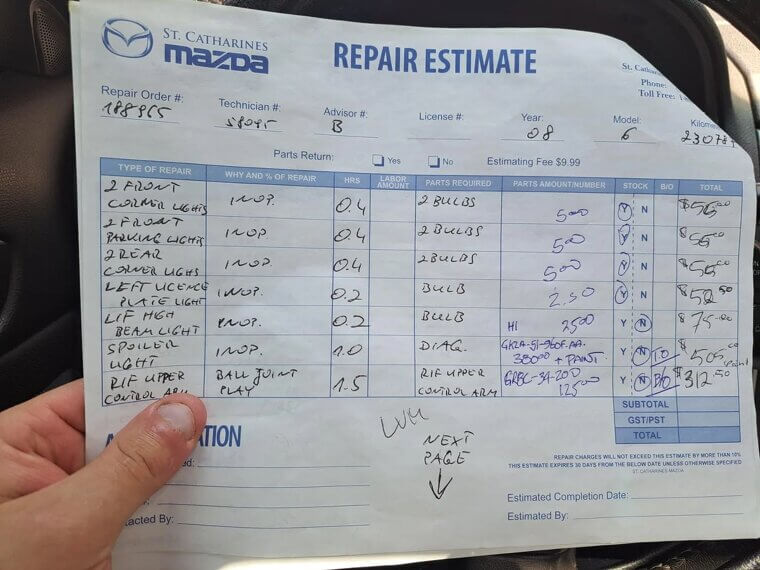 ST. CATHARINES
mazda
REPAIR ESTIMATE
St. Catharines
Phone:
Toll Free: 1
Repair Order #: 188965
Technician #: 58095
Advisor #: B
License #:
Year: 08
Model: 6
230789
Parts Return: Yes No Estimating Fee $9.99
TYPE OF REPAIR WHY AND % OF REPAIR HRS LABOR AMOUNT PARTS REQUIRED PARTS AMOUNT/NUMBER STOCK B/O TOTAL
2 FRONT CORNER LIGHTS INOP. 0.4 2 BULBS 5.00 Y N
2 FRONT PARKING LIGHTS INOP 0.4 2 BULBS 5.00 Y N
2 REAR CORNER LIGHTS INOP 0.4 2 BULBS 5.00 Y N
LEFT LICENCE PLATE LIGHT INOP. 0.2 BULB 2.50 Y N $52.50
L/F HGH BEAM LIGHT INOP. 0.2 BULB H1 25.00 Y N $75.00
SPOILER LIGHT INOP. 1.0 DIAG. 380.00 + PAINT Y N $505.00
R/F UPPER CONTROL ARM BALL JOINT PLAY 1.5 R/F UPPER CONTROL ARM 125.00 Y N B/O $312.50
SUBTOTAL
GST/PST
TOTAL
NEXT
PAGE
REPAIR CHARGES WILL NOT EXCEED THIS ESTIMATE BY MORE THAN 10%
THIS ESTIMATE EXPIRES 30 DAYS FROM THE BELOW DATE UNLESS OTHERWISE SPECIFIED
ST. CATHARINES MAZDA
Estimated Completion Date:
Estimated By: